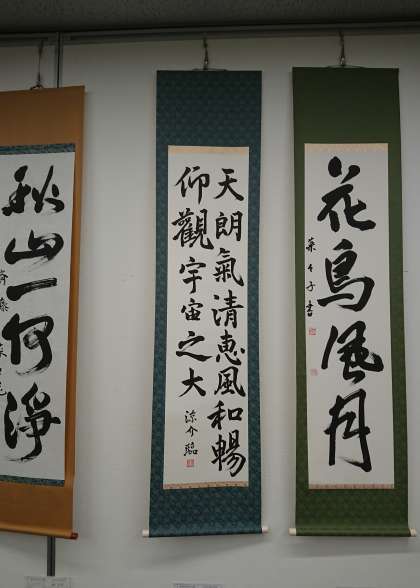 花鳥風月
菜々子書
天朗氣清惠風和暢
仰觀宇宙之大
涼介臨
秋山一何淨
齊藤